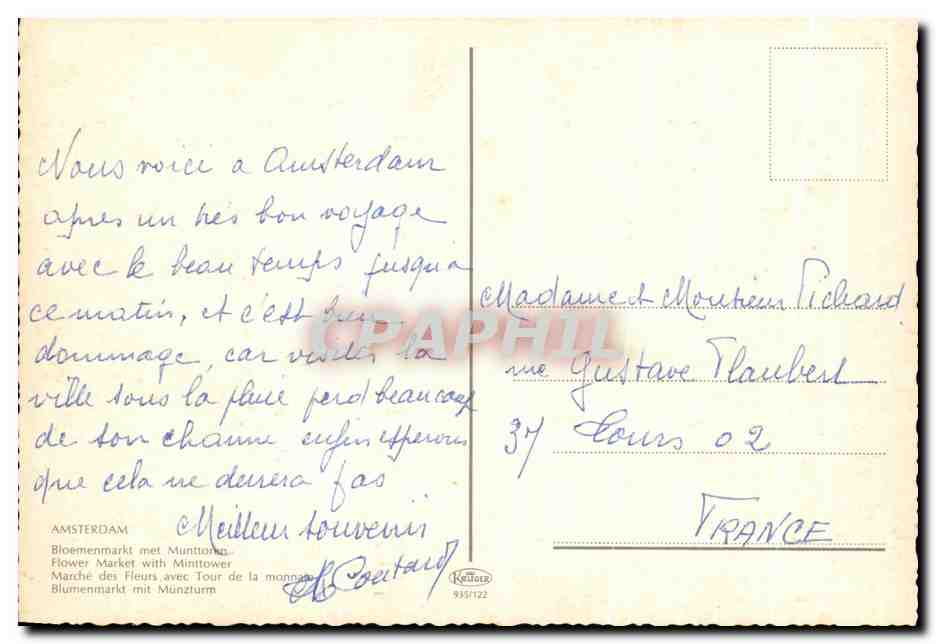 Nous voici a Amsterdam
apres un tres bon voyage
avec le beau temps jusqu'a
ce matin, et c'est bien
dommage, car visiter la
ville sous la pluie perd beaucoup
de son charme enfin esperons
que cela ne durera pas
Meilleur souvenir
Coutard
AMSTERDAM
Bloemenmarkt met Munttoren
Flower Market with Minttower
Marché des Fleurs avec Tour de la monnaie
Blumenmarkt mit Münzturm
KRUGER
935/122
Madame et Monsieur Pichard
rue Gustave Flaubert
37 Tours 02
FRANCE
CPAPHIL